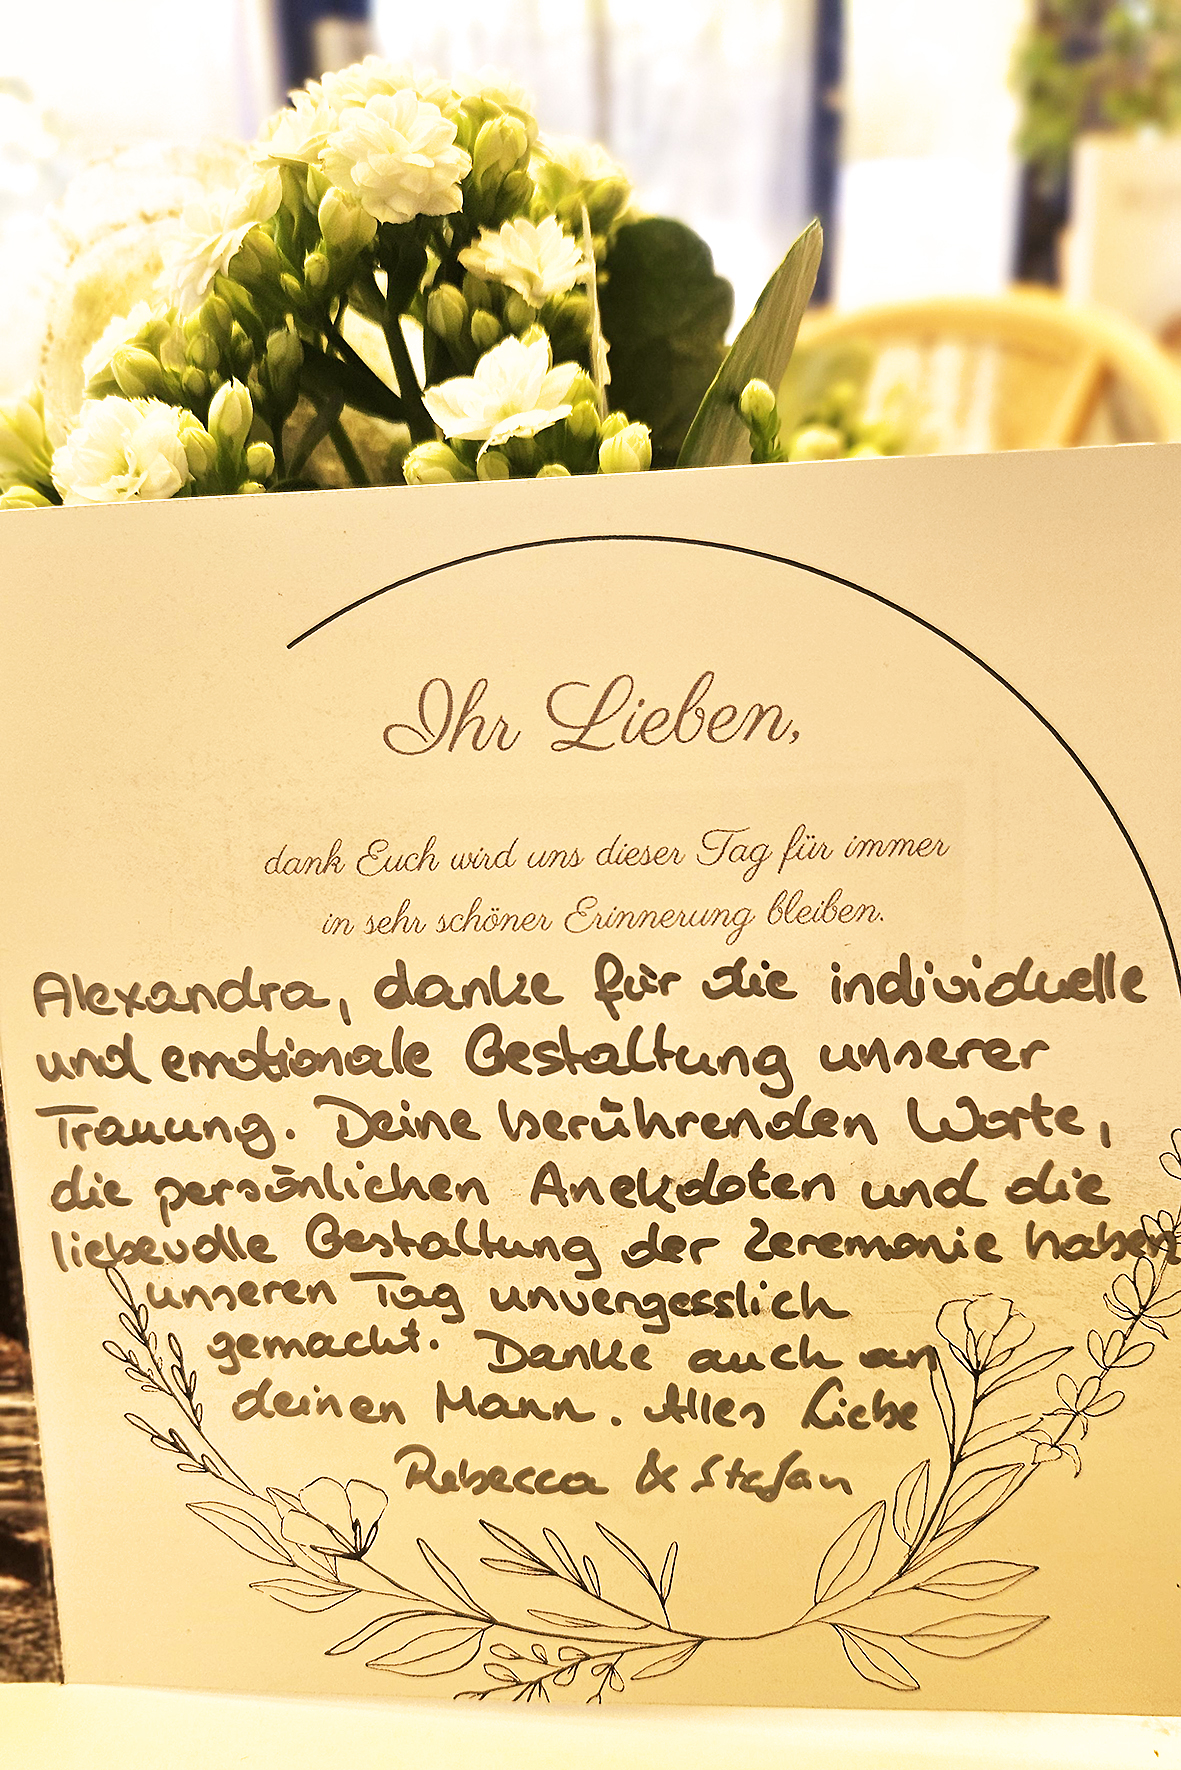 Ihr Lieben,
dank Euch wird uns dieser Tag für immer
in sehr schöner Erinnerung bleiben.
Alexandra, danke für die individuelle
und emotionale Gestaltung unserer
Trauung. Deine berührenden Worte,
die persönlichen Anekdoten und die
liebevolle Gestaltung der Zeremonie haben
unseren Tag unvergesslich
gemacht. Danke auch an
deinen Mann. Alles Liebe
Rebecca & Stefan